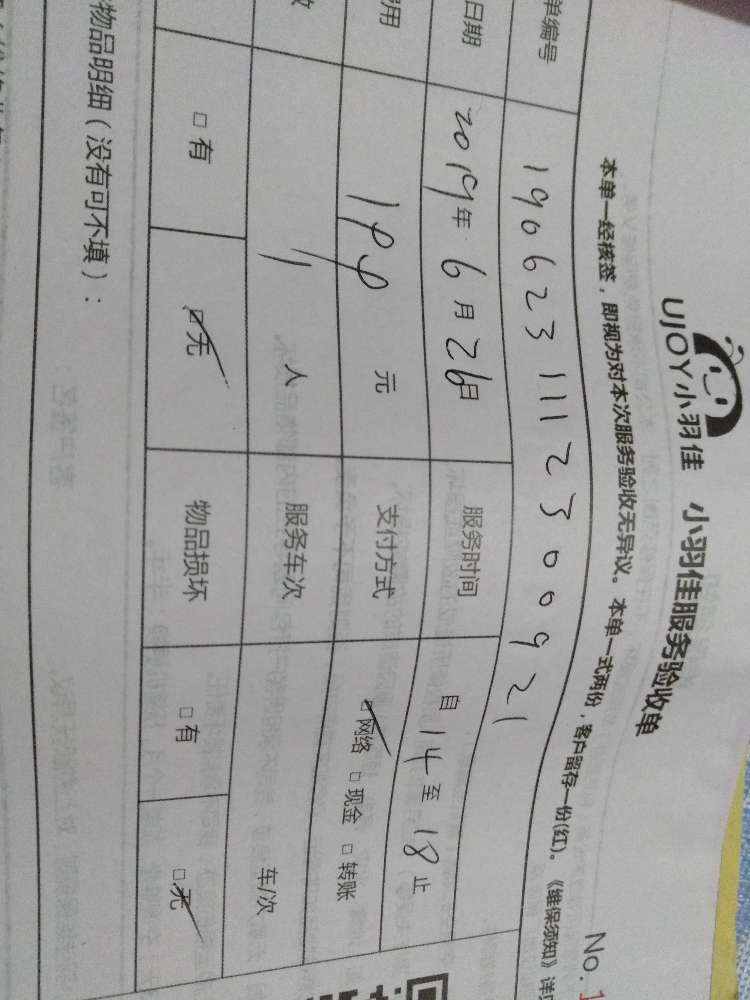 UJOY小羽佳 小羽佳服务验收单
No.
本单一经核签，即视为对本次服务验收无异议。本单一式两份，客户留存一份(红)。《维保须知》详
单编号 19062311123000921
日期 2019年6月26日 服务时间 自14至18止
用 199元 支付方式 ☑网络 □现金 □转账
数 1人 服务车次 车/次
□有 ☑无 物品损坏 □有 ☑无
物品明细（没有可不填）：